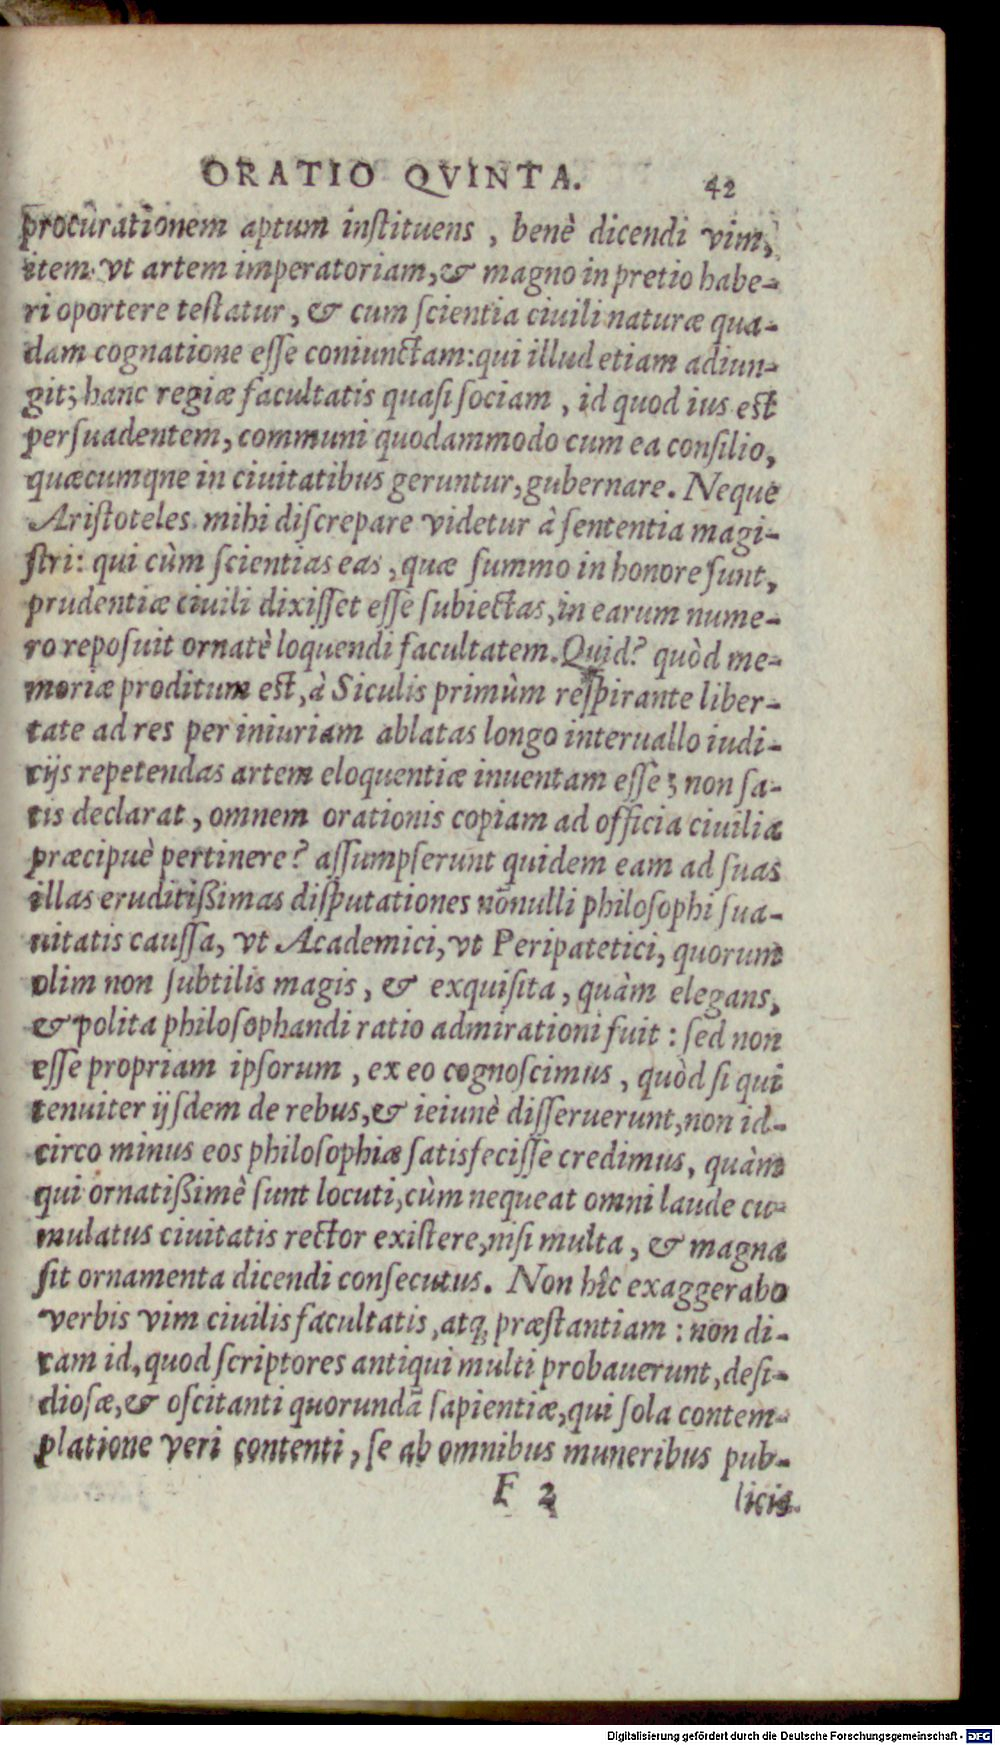 ORATIO QVINTA. 42
procurationem aptum inſtituens, benè dicendi vim,
item vt artem imperatoriam, & magno in pretio habe-
ri oportere teſtatur, & cum ſcientia ciuili naturæ qua-
dam cognatione eſſe coniunctam: qui illud etiam adiun-
git; hanc regiæ facultatis quaſi ſociam, id quod ius eſt
perſuadentem, communi quodammodo cum ea conſilio,
quæcumqne in ciuitatibus geruntur, gubernare. Neque
Ariſtoteles mihi diſcrepare videtur à ſententia magi-
ſtri: qui cùm ſcientias eas, quæ ſummo in honore ſunt,
prudentiæ ciuili dixiſſet eſſe ſubiectas, in earum nume-
ro repoſuit ornatè loquendi facultatem. Quid? quòd me-
moriæ proditum eſt, à Siculis primùm reſpirante liber-
tate ad res per iniuriam ablatas longo interuallo iudi-
cijs repetendas artem eloquentiæ inuentam eſſe; non ſa-
tis declarat, omnem orationis copiam ad officia ciuilia
præcipuè pertinere? aſſumpſerunt quidem eam ad ſuas
illas eruditißimas diſputationes nōnulli philoſophi ſua-
uitatis cauſſa, vt Academici, vt Peripatetici, quorum
olim non ſubtilis magis, & exquiſita, quàm elegans,
& polita philoſophandi ratio admirationi fuit: ſed non
eſſe propriam ipſorum, ex eo cognoſcimus, quòd ſi qui
tenuiter ijſdem de rebus, & ieiunè diſſeruerunt, non id-
circo minus eos philoſophiæ ſatisfeciſſe credimus, quàm
qui ornatißimè ſunt locuti, cùm nequeat omni laude cu-
mulatus ciuitatis rector exiſtere, niſi multa, & magna
ſit ornamenta dicendi conſecutus. Non hîc exaggerabo
verbis vim ciuilis facultatis, atq; præſtantiam: non di-
cam id, quod ſcriptores antiqui multi probauerunt, deſi-
dioſæ, & oſcitanti quorundā ſapientiæ, qui ſola contem-
platione veri contenti, ſe ab omnibus muneribus pub-
F 2 licis
Digitalisierung gefördert durch die Deutsche Forschungsgemeinschaft - DFG